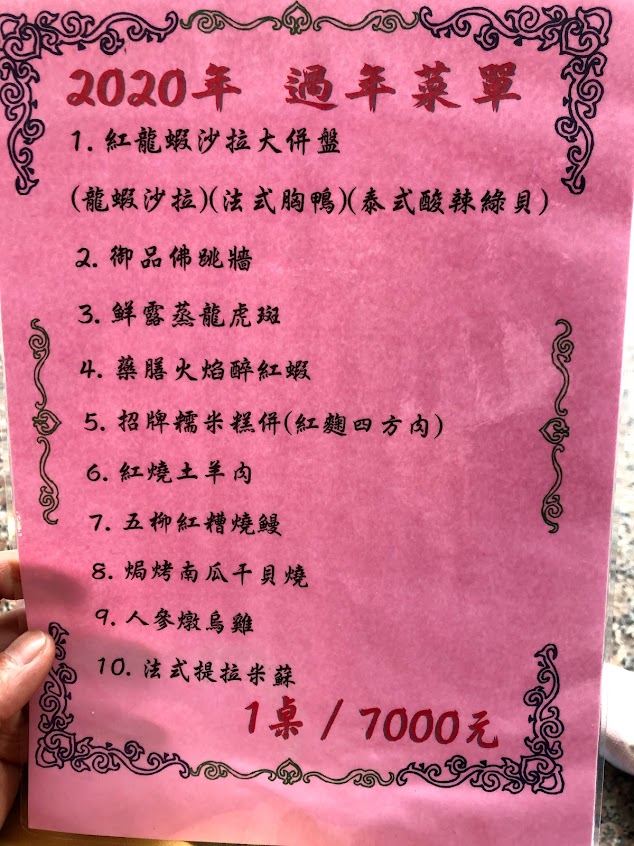 2020年 過年菜單
1. 紅龍蝦沙拉大併盤
(龍蝦沙拉)(法式胸鴨)(泰式酸辣綠貝)
2. 御品佛跳牆
3. 鮮露蒸龍虎斑
4. 藥膳火焰醉紅蝦
5. 招牌糯米糕併(紅麴四方肉)
6. 紅燒土羊肉
7. 五柳紅糟燒鰻
8. 焗烤南瓜干貝燒
9. 人參燉烏雞
10. 法式提拉米蘇
1桌 / 7000元